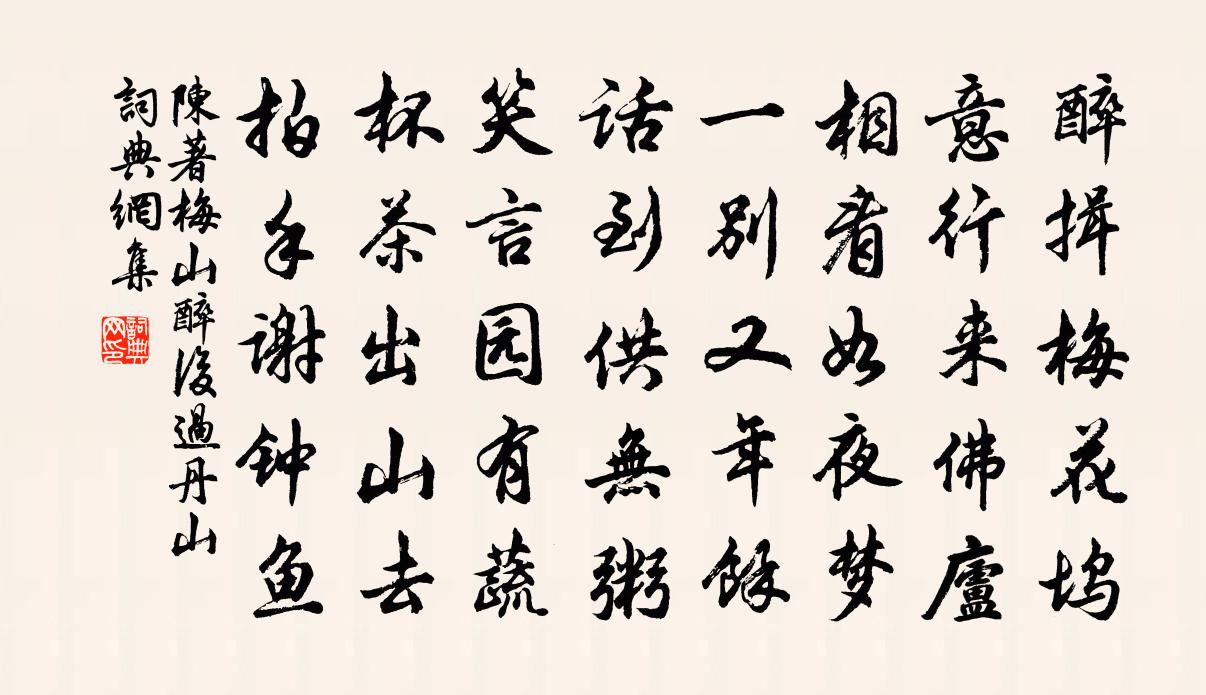 醉揖梅花坞
意行来佛廬
相看如夜梦
一别又年餘
话到供無粥
笑言园有蔬
杯茶出山去
拍手谢钟鱼
陳著梅山醉後過丹山
詞典網集
詞典网印